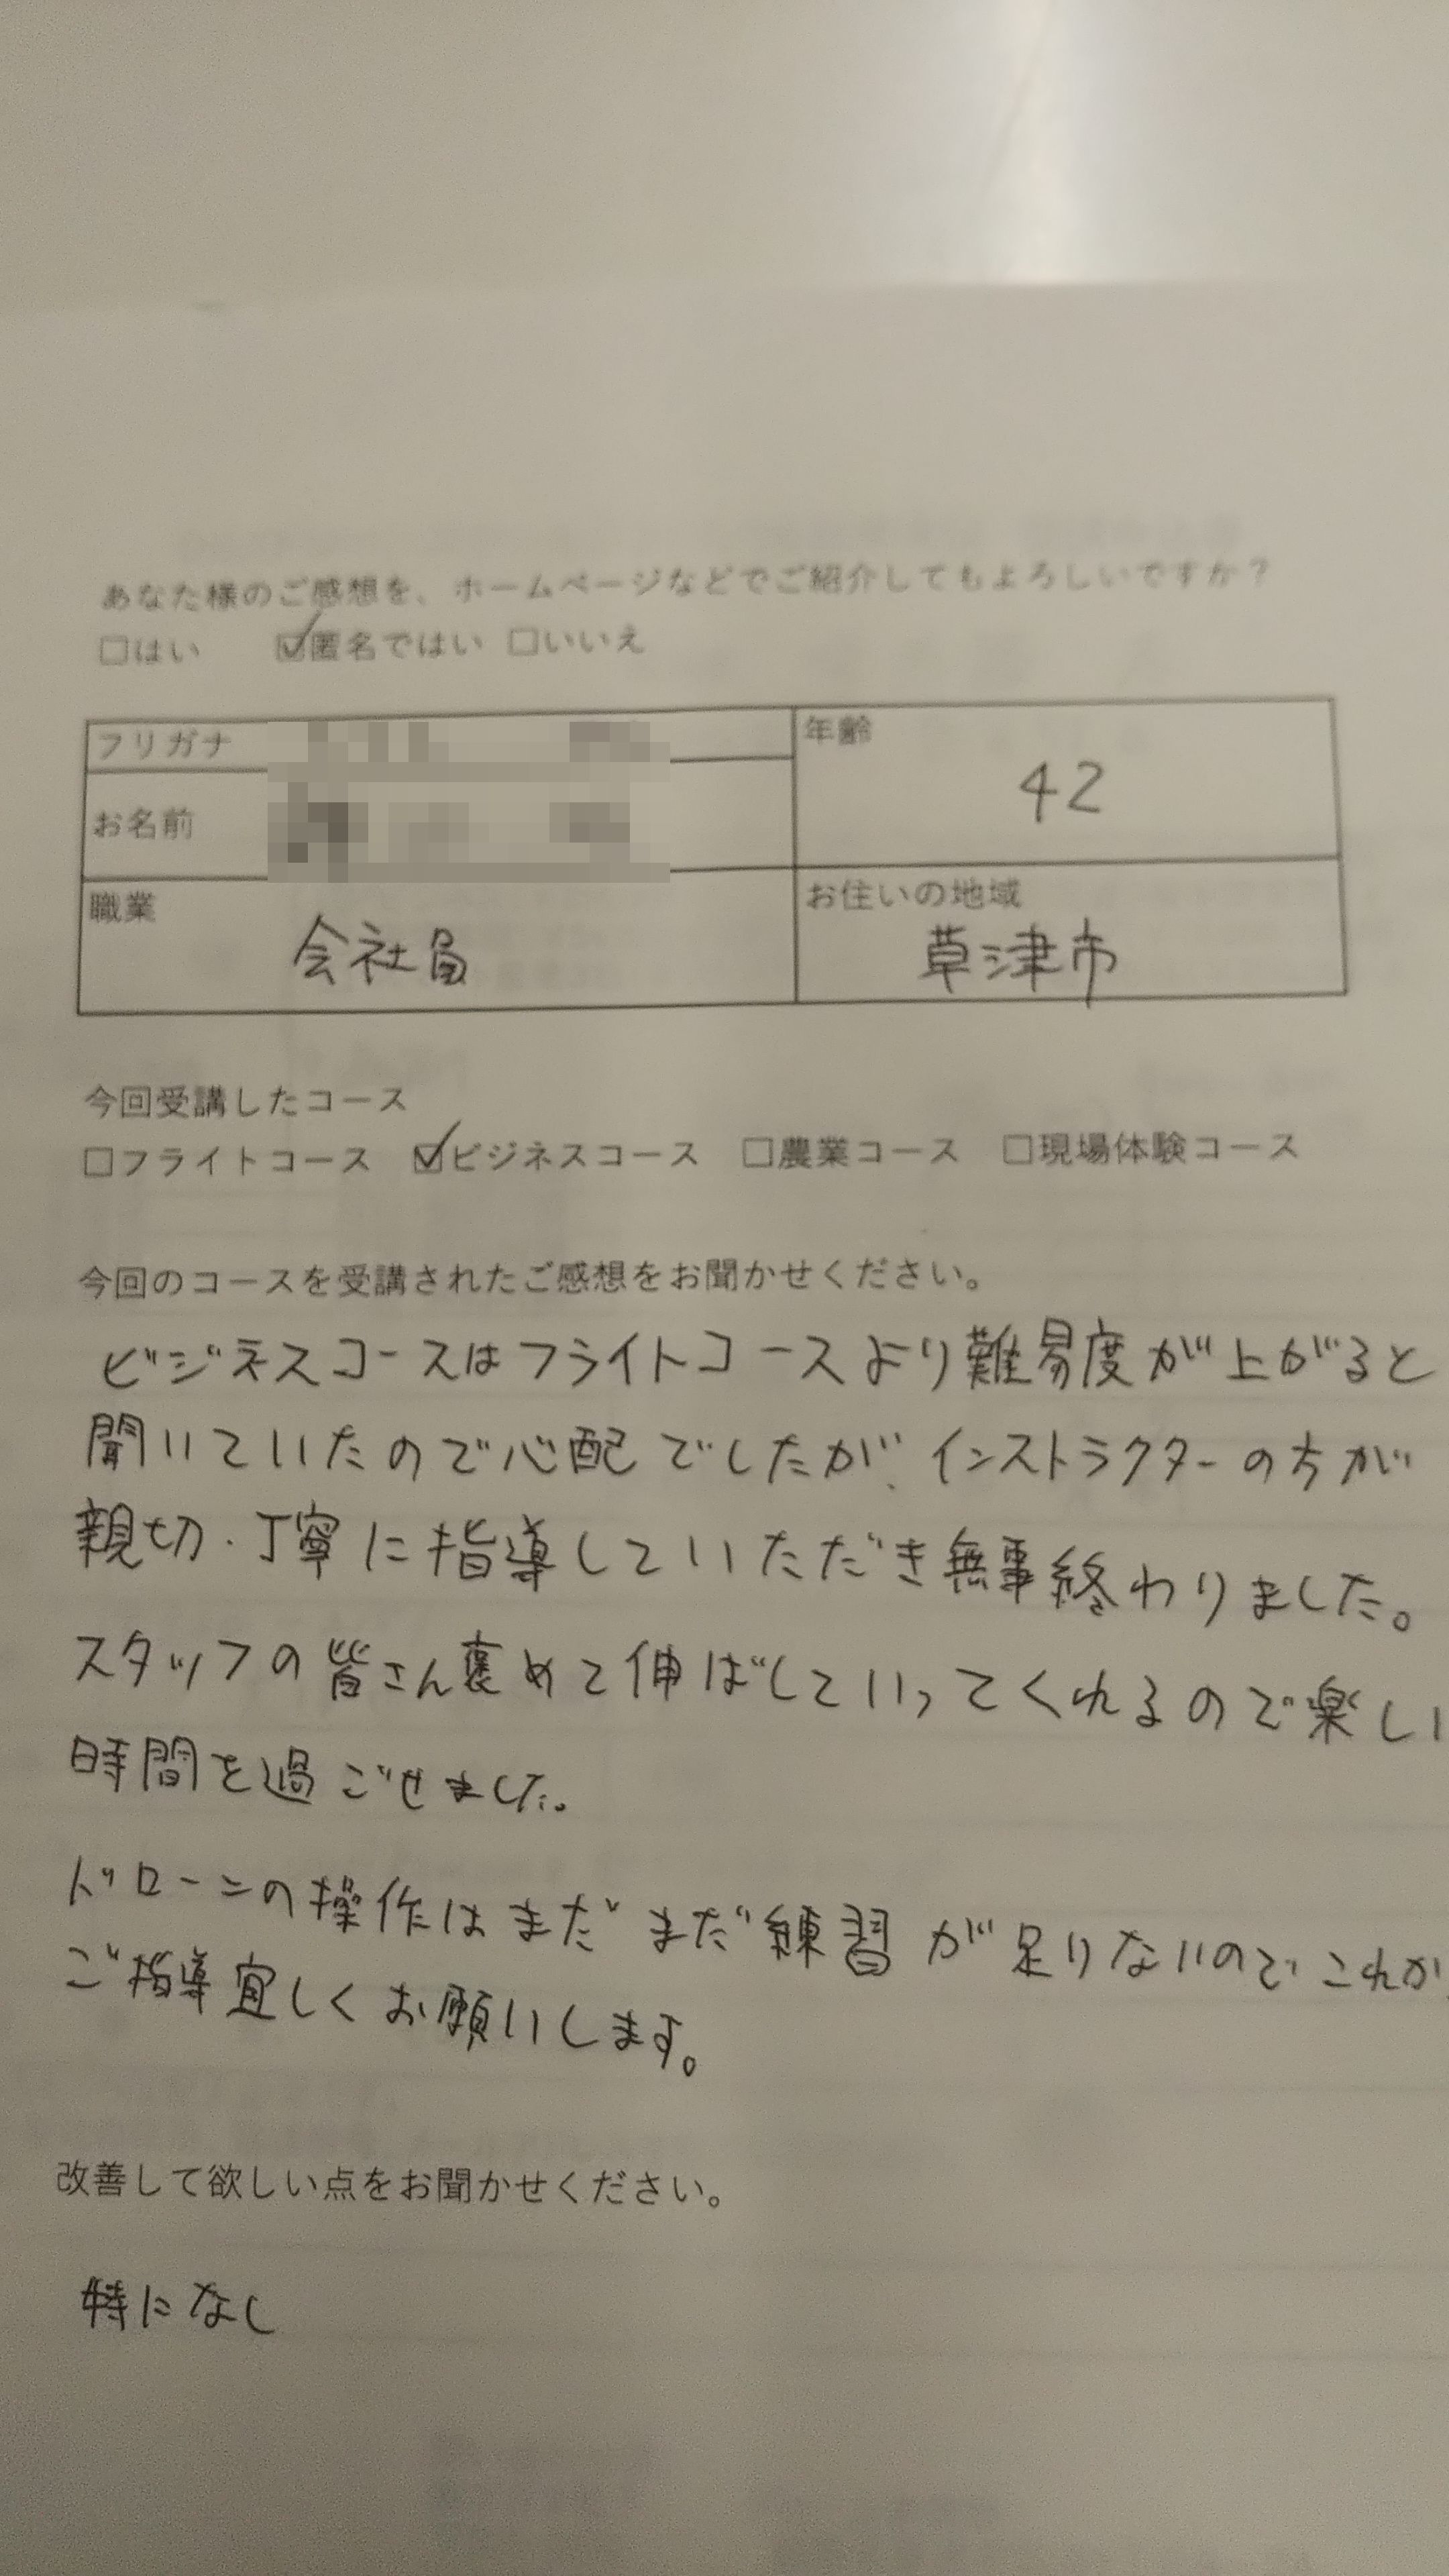 あなた様のご感想を、ホームページなどでご紹介してもよろしいですか？
□はい ☑匿名ではい □いいえ
フリガナ
年齢
42
お名前
職業
会社員
お住いの地域
草津市
今回受講したコース
□フライトコース ☑ビジネスコース □農業コース □現場体験コース
今回のコースを受講されたご感想をお聞かせください。
ビジネスコースはフライトコースより難易度が上がると
聞いていたので心配でしたが、インストラクターの方が
親切・丁寧に指導していただき無事終わりました。
スタッフの皆さん褒めて伸ばしていってくれるので楽しい
時間を過ごせました。
ドローンの操作はまだまだ練習が足りないのでこれか
ご指導宜しくお願いします。
改善して欲しい点をお聞かせください。
特になし